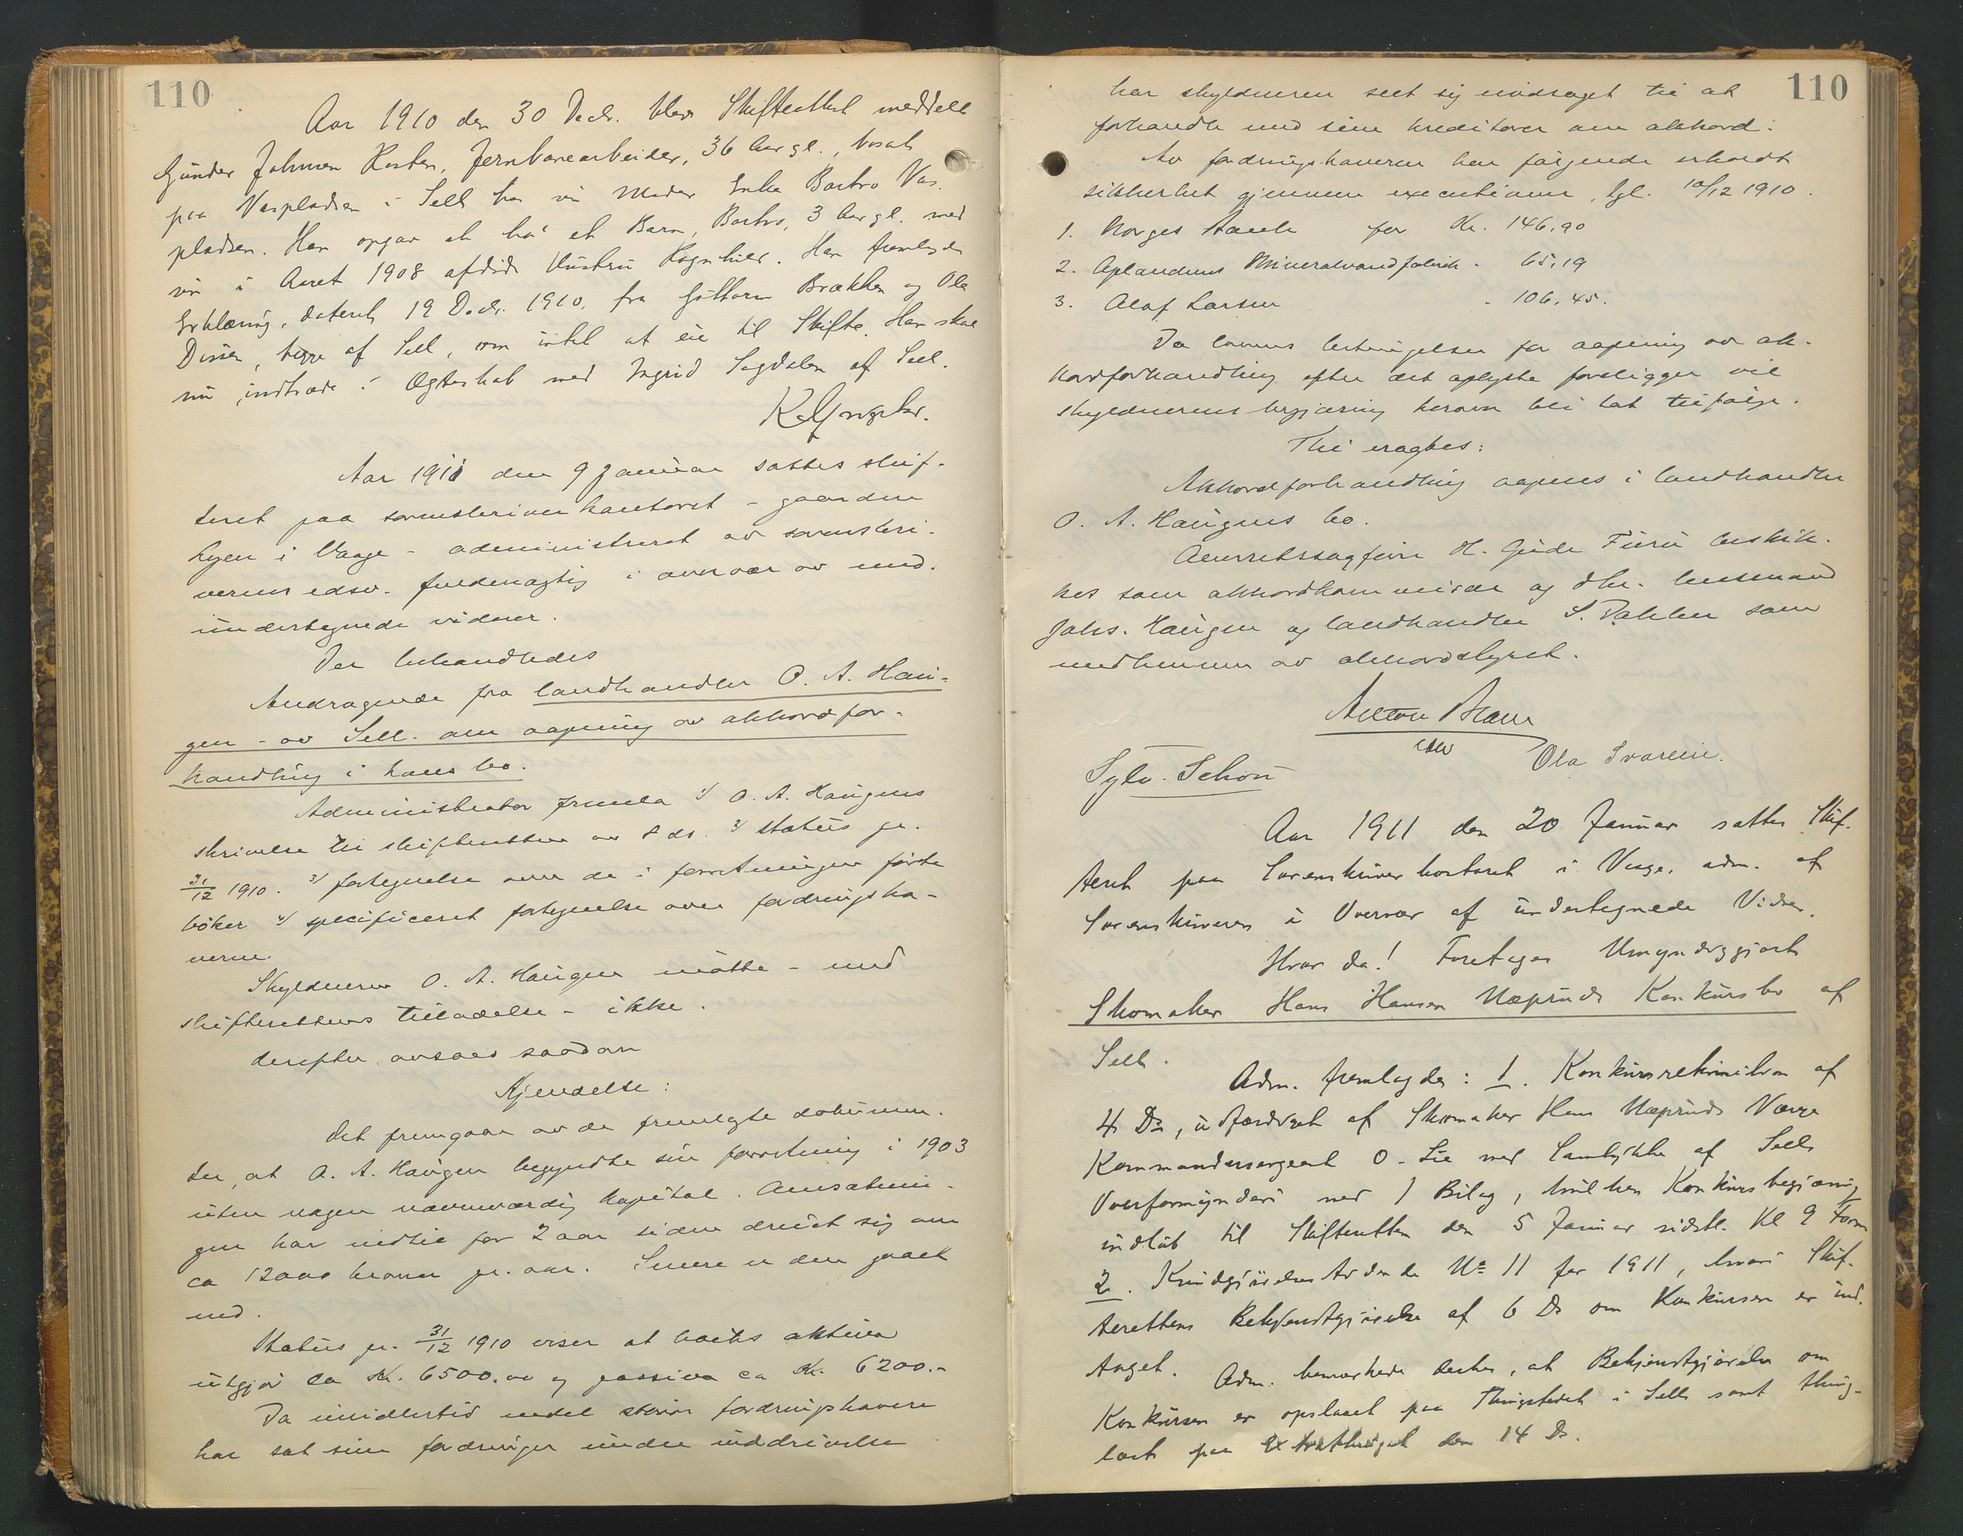 110
Aar 1910 den 30 Decbr. blev Skifteattest meddelt
Gunder Johnsen Kosten, Jernbanearbeider, 36 Aar gl., bosat
paa Vaspladsen i Sell hos sin Moder Enke Barbro Vas-
pladsen. Han opgav at ha' et Barn, Barbro, 3 Aar gl. med
sin i Aaret 1908 afdøde Hustru Ragnhild. Han fremlagde
Erklæring, dateret 19 Decbr. 1910, fra Guttorm Brækken og Ola
Diesen, begge af Sell, om intet at eie til Skifte. Han skal
nu indtræde i Ægteskab med Ingrid Sagdalen af Sell.
Aar 1911 den 9 januar sattes skif-
teret paa sorenskriverkontoret - gaarden
Lyen i Vaage - administreret av sorenskri-
verens edsv. fuldmægtig i overvær av med-
undertegnede vidner.
Der behandledes
Andragende fra landhandler O. A. Hau-
gen - av Sell - om aapning av akkordfor-
handling i hans bo.
Administrator fremla 1/ O. A. Haugens
skrivelse til skifteretten av 8 ds. 2/ status pr.
31/12 1910. 3/ fortegnelse over de i forretningen førte
bøker 4/ specificeret fortegnelse over fordringsha-
verne.
Skyldneren O. A. Haugen møtte - med
skifterettens tilladelse - ikke.
Derefter avsaes saadan
Kjendelse:
Det fremgaar av de fremlagte dokumen-
ter, at O. A. Haugen begyndte sin forretning i 1903
uten nogen nævneværdig kapital. Omsætnin-
gen har indtil for 2 aar siden dreiet sig om
ca 12000 kroner pr. aar. Senere er den gaaet
ned.
Status pr. 31/12 1910 viser at boets aktiva
utgjør ca Kr. 6500.00 og passiva ca Kr. 6200.-
Da imidlertid endel større fordringshavere
har sat sine fordringer under inddrivelse
110
har skyldneren seet sig nødsaget til at
forhandle med sine kreditorer om akkord.
Av fordringshaverne har følgende erholdt
sikkerhet gjennem executioner, tgl. 10/12 1910.
1. Norges Bank for Kr. 146,90
2. Oplandenes Mineralvandfabrik - 65,19
3. Olaf Larsen - 106,45.
Da lovens betingelser for aapning av ak-
kordforhandling efter det oplyste foreligger vil
skyldnerens begjæring herom bli tat tilfølge.
Thi eragtes:
Akkordforhandling aapnes i landhandler
O. A. Haugens bo.
Overretssagfører H. Gude Furu beskik-
kes som akkordkommissær og dhr. lensmand
Johs. Haugen og landhandler S. Dahlen som
medlemmer av akkordstyret.
Anton Braen
Ola Svarein.
Sylv. Schou
Aar 1911 den 20 Januar sattes Skif-
teret paa Sorenskriverkontoret i Vaage, adm. af
Sorenskriveren i Overvær af undertegnede Vidner.
Hvor da! Foretages Umyndiggjort
Skomaker Hans Hansen Næprudes Konkursbo af
Sell.
Adm. fremlagdes: 1. Konkursrekvisition af
4 Ds, udfærdiget af Skomaker Hans Næpruds Værge
Kommandersergeant O. Lie med Samtykke af Sells
Overformynderi med 1 Bilag, hvilken Konkursbegjæring
indløb til Skifteretten den 5 Januar sidstl. Kl 9 Form
2. Kundgjørelsestidende No 11 for 1911, hvori Skif-
terettens Bekjendtgjørelse af 6 Ds om Konkursen er ind-
taget. Adm. bemærkede derhos, at Bekjendtgjørelse om
Konkursen er opslaaet paa Thingstedet i Sell samt thing-
læst paa Extrathinget den 14 Ds.